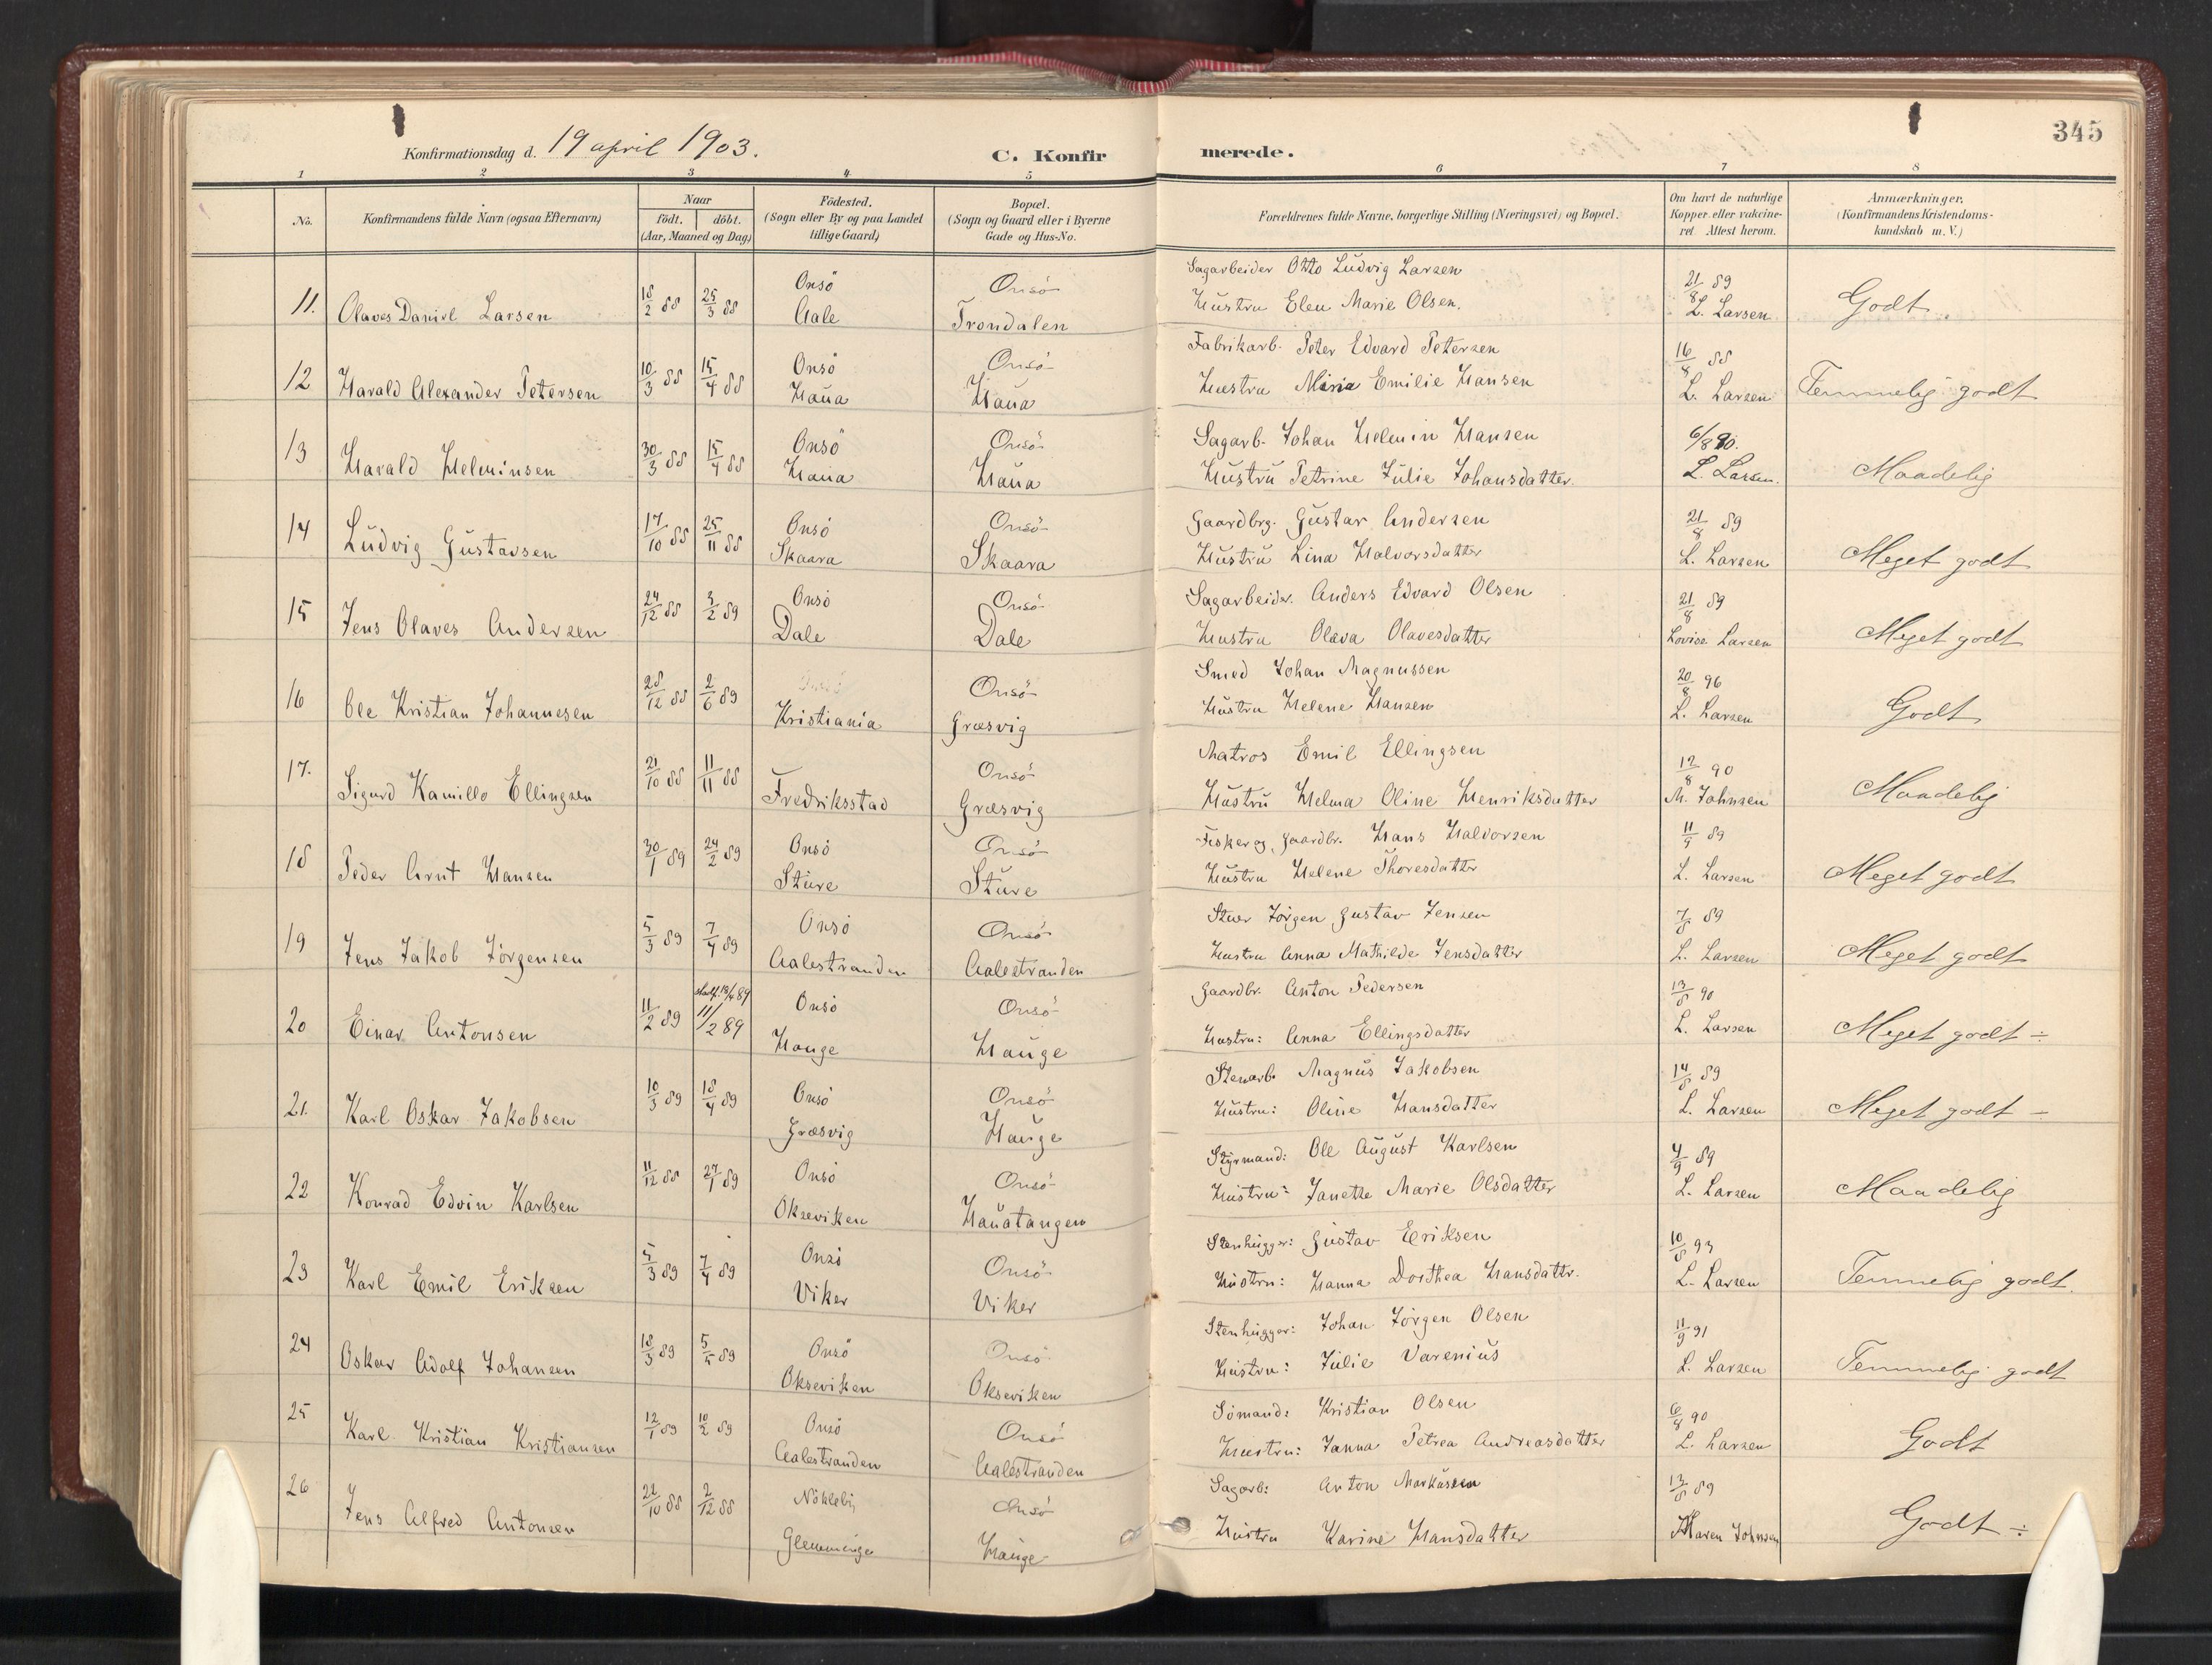 345
Konfirmationsdag d. 19 april 1903.
C. Konfirmerede.
1 2 3 4 5 6 7 8
No. Konfirmandens fulde Navn (ogsaa Efternavn) Naar födt. döbt. (Aar, Maaned og Dag) Födested. (Sogn eller By og paa Landet tillige Gaard) Bopæl. (Sogn og Gaard eller i Byerne Gade og Hus-No. Forældrenes fulde Navne, borgerlige Stilling (Næringsvei) og Bopæl. Om havt de naturlige Kopper eller vakcineret Attest herom. Anmærkninger. (Konfirmandens Kristendomskundskab m. V.)
11. Olaves Daniel Larsen 18/2 88 25/3 88 Onsö Aale Onsö Trondalen Sagarbeider Otto Ludvig Larsen Hustru Elen Marie Olsen. 21/8 89 L. Larsen Godt.
12 Harald Alexander Petersen 10/3 88 15/4 88 Onsö Haua Onsö Haua Fabrikarb. Peter Edvard Petersen Hustru Maria Emilie Hansen 16/8 88 L. Larsen Temmelig godt
13 Harald Helminsen 30/3 88 15/4 88 Onsö Haua Onsö Haua Sagarb. Johan Helmin Hansen Hustru Petrine Julie Johansdatter. 6/8 90. L. Larsen. Maadelig
14 Ludvig Gustavsen 17/10 88 25/11 88 Onsö Skaara Onsö Skaara Gaardbrg. Gustav Andersen Hustru Lina Halvorsdatter 21/8 89 L. Larsen Meget godt
15 Jens Olaves Andersen 24/12 88 3/2 89 Onsö Dale Onsö Dale Sagarbeider. Anders Edvard Olsen Hustru Olava Olavesdatter 21/8 89 Lovise Larsen Meget godt
16 Ole Kristian Johannesen 28/12 88 2/6 89 Kristiania Onsö Græsvig Smed Johan Magnussen Hustru Helene Hansen 20/8 96 L. Larsen Godt
17. Sigurd Kamillo Ellingsen 21/10 88 11/11 88 Fredriksstad Onsö Græsvig Matros Emil Ellingsen Hustru Helma Oline Henriksdatter 12/8 90 M. Johnsen Maadelig
18 Peder Arnt Hansen 30/1 89 24/2 89 Onsö Sture Onsö Sture Fisker og Gaardbr. Hans Halvorsen Hustru Helene Thoresdatter 11/9 89 L. Larsen Meget godt
19 Jens Jakob Jörgensen 5/3 89 7/4 89 Onsö Aalestranden Onsö Aalestranden Stuer Jörgen Gustav Jensen Hustru Anna Mathilde Jensdatter 7/8 89 L. Larsen Meget godt
20 Einar Antonsen 11/2 89 stadf. 19/4 89 11/2 89 Onsö Hauge Onsö Hauge Gaardbr. Anton Pedersen Hustru: Anna Ellingsdatter 13/8 90 L. Larsen Meget godt ÷
21. Karl Oskar Jakobsen 10/3 89 18/4 89 Onsö Græsvig Onsö Hauge Stenarb. Magnus Jakobsen Hustru: Oline Hansdatter 14/8 89 L. Larsen Meget godt –
22 Konrad Edvin Karlsen 11/12 88 27/1 89 Onsö Okseviken Onsö Hauatangen Styrmand: Ole August Karlsen Hustru: Janette Marie Olsdatter 4/9 89 L. Larsen Maadelig
23 Karl Emil Eriksen 5/3 89 7/4 89 Onsö Viker Onsö Viker Stenhugger: Gustav Eriksen Hustru: Hanna Dorthea Hansdattr. 10/8 93 L. Larsen Temmelig godt.
24 Oskar Adolf Johansen 18/3 89 5/5 89 Onsö Okseviken Onsö Okseviken Stenhugger: Johan Jörgen Olsen Hustru: Julie Varenius 11/9 91 L. Larsen Temmelig godt
25 Karl Kristian Kristiansen 12/1 89 10/2 89 Onsö Aalestranden Onsö Aalestranden Sömand: Kristian Olsen Hustru: Janna Petrea Andreasdatter 6/8 90 L. Larsen Godt
26 Jens Alfred Antonsen 22/10 88 2/12 88 Nökleby Glemminge Onsö Hauge Sagarb: Anton Markussen Hustru Karine Hansdatter 13/8 89 Maren Johnsen Godt ÷